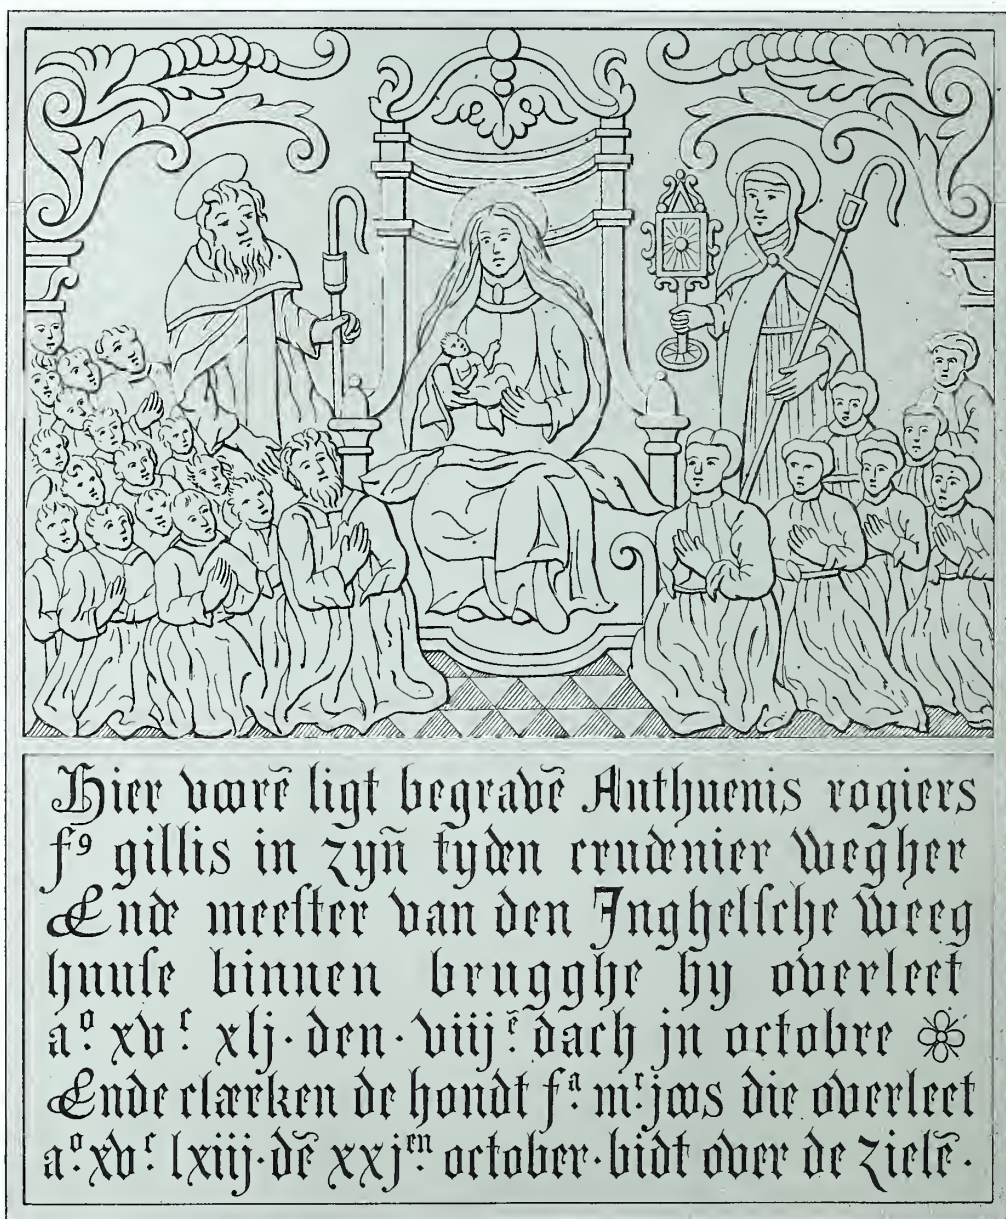 Hier voorē ligt begravē Anthuenis rogiers
fꝰ gillis in zyn̄ tyden crudenier wegher
Ende meester van den Inghelsche weeg
huuse binnen brugghe hy overleet
aº xvᶜ xlj · den · viijᵉ̄ dach jn octobre
Ende clærken de hondt fª mʳ joos die overleet
aº xvᶜ lxiij · dē xxjᵉⁿ october · bidt over de zielē ·